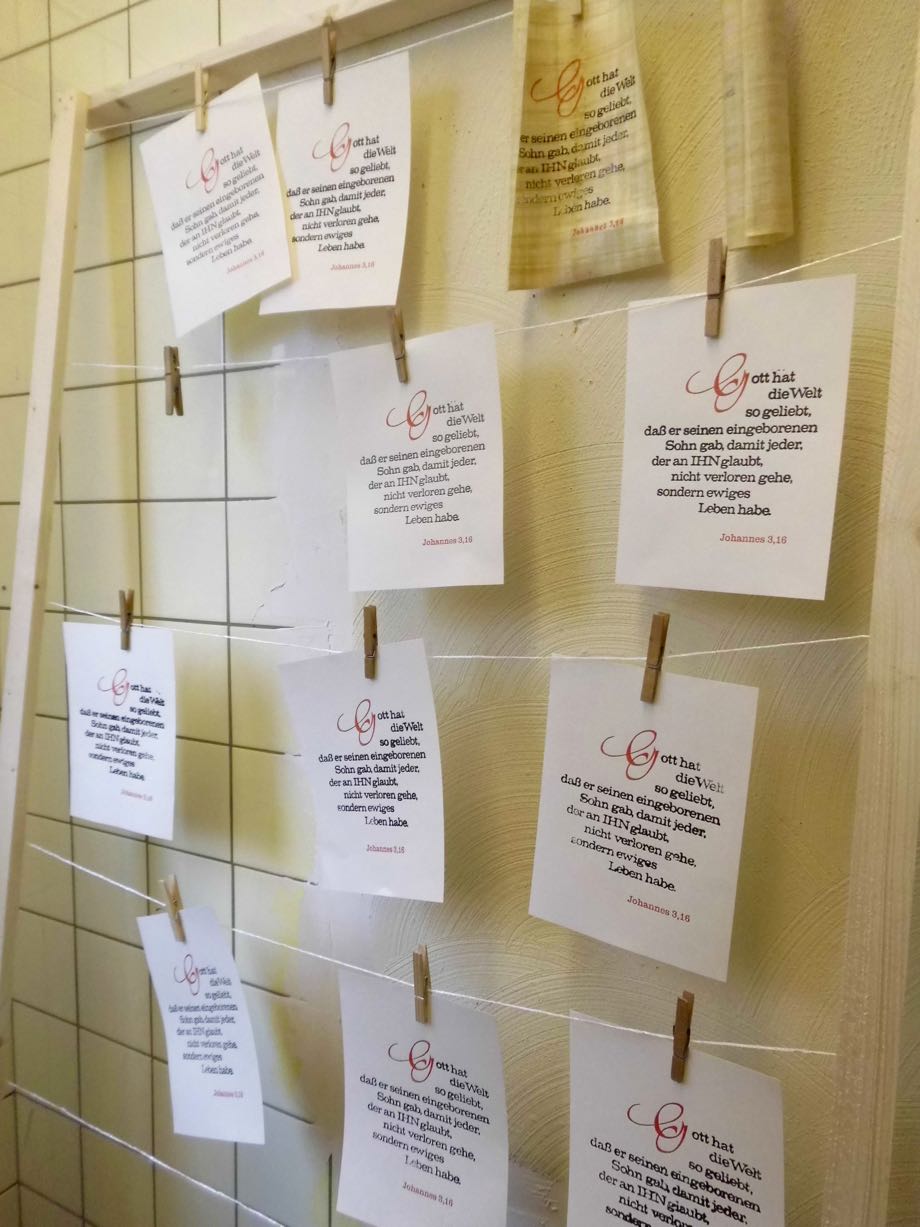 Gott hat
die Welt
so geliebt,
daß er seinen eingeborenen
Sohn gab, damit jeder,
der an IHN glaubt,
nicht verloren gehe,
sondern ewiges
Leben habe.
Johannes 3,16
Gott hat
die Welt
so geliebt,
daß er seinen eingeborenen
Sohn gab, damit jeder,
der an IHN glaubt,
nicht verloren gehe,
sondern ewiges
Leben habe.
Johannes 3,16
Gott hat
die Welt
so geliebt,
er seinen eingeborenen
Sohn gab, damit jeder,
er an IHN glaubt,
nicht verloren gehe,
ondern ewiges
Leben habe.
Johannes 3,16
Gott hat
die Welt
so geliebt,
daß er seinen eingeborenen
Sohn gab, damit jeder,
der an IHN glaubt,
nicht verloren gehe,
sondern ewiges
Leben habe.
Johannes 3,16
Gott hat
die Welt
so geliebt,
daß er seinen eingeborenen
Sohn gab, damit jeder,
der an IHN glaubt,
nicht verloren gehe,
sondern ewiges
Leben habe.
Johannes 3,16
Gott hat
die Welt
so geliebt,
daß er seinen eingeborenen
Sohn gab, damit jeder,
der an IHN glaubt,
nicht verloren gehe,
sondern ewiges
Leben habe.
Johannes 3,16
Gott hat
die Welt
so geliebt,
daß er seinen eingeborenen
Sohn gab, damit jeder,
der an IHN glaubt,
nicht verloren gehe,
sondern ewiges
Leben habe.
Johannes 3,16
Gott hat
die Welt
so geliebt,
daß er seinen eingeborenen
Sohn gab, damit jeder,
der an IHN glaubt,
nicht verloren gehe,
sondern ewiges
Leben habe.
Johannes 3,16
Gott hat
die Welt
so geliebt,
daß er seinen eingeborenen
Sohn gab, damit jeder,
der an IHN glaubt,
nicht verloren gehe,
sondern ewiges
Leben habe.
Johannes 3,16
Gott hat
die Welt
so geliebt,
daß er seinen eingeborenen
Sohn gab, damit jeder,
der an IHN glaubt,
nicht verloren gehe,
sondern ewiges
Leben habe.
Johannes 3,16
Gott hat
die Welt
so geliebt,
daß er seinen eingeborenen
Sohn gab, damit jeder,
der an IHN glaubt,
nicht verloren